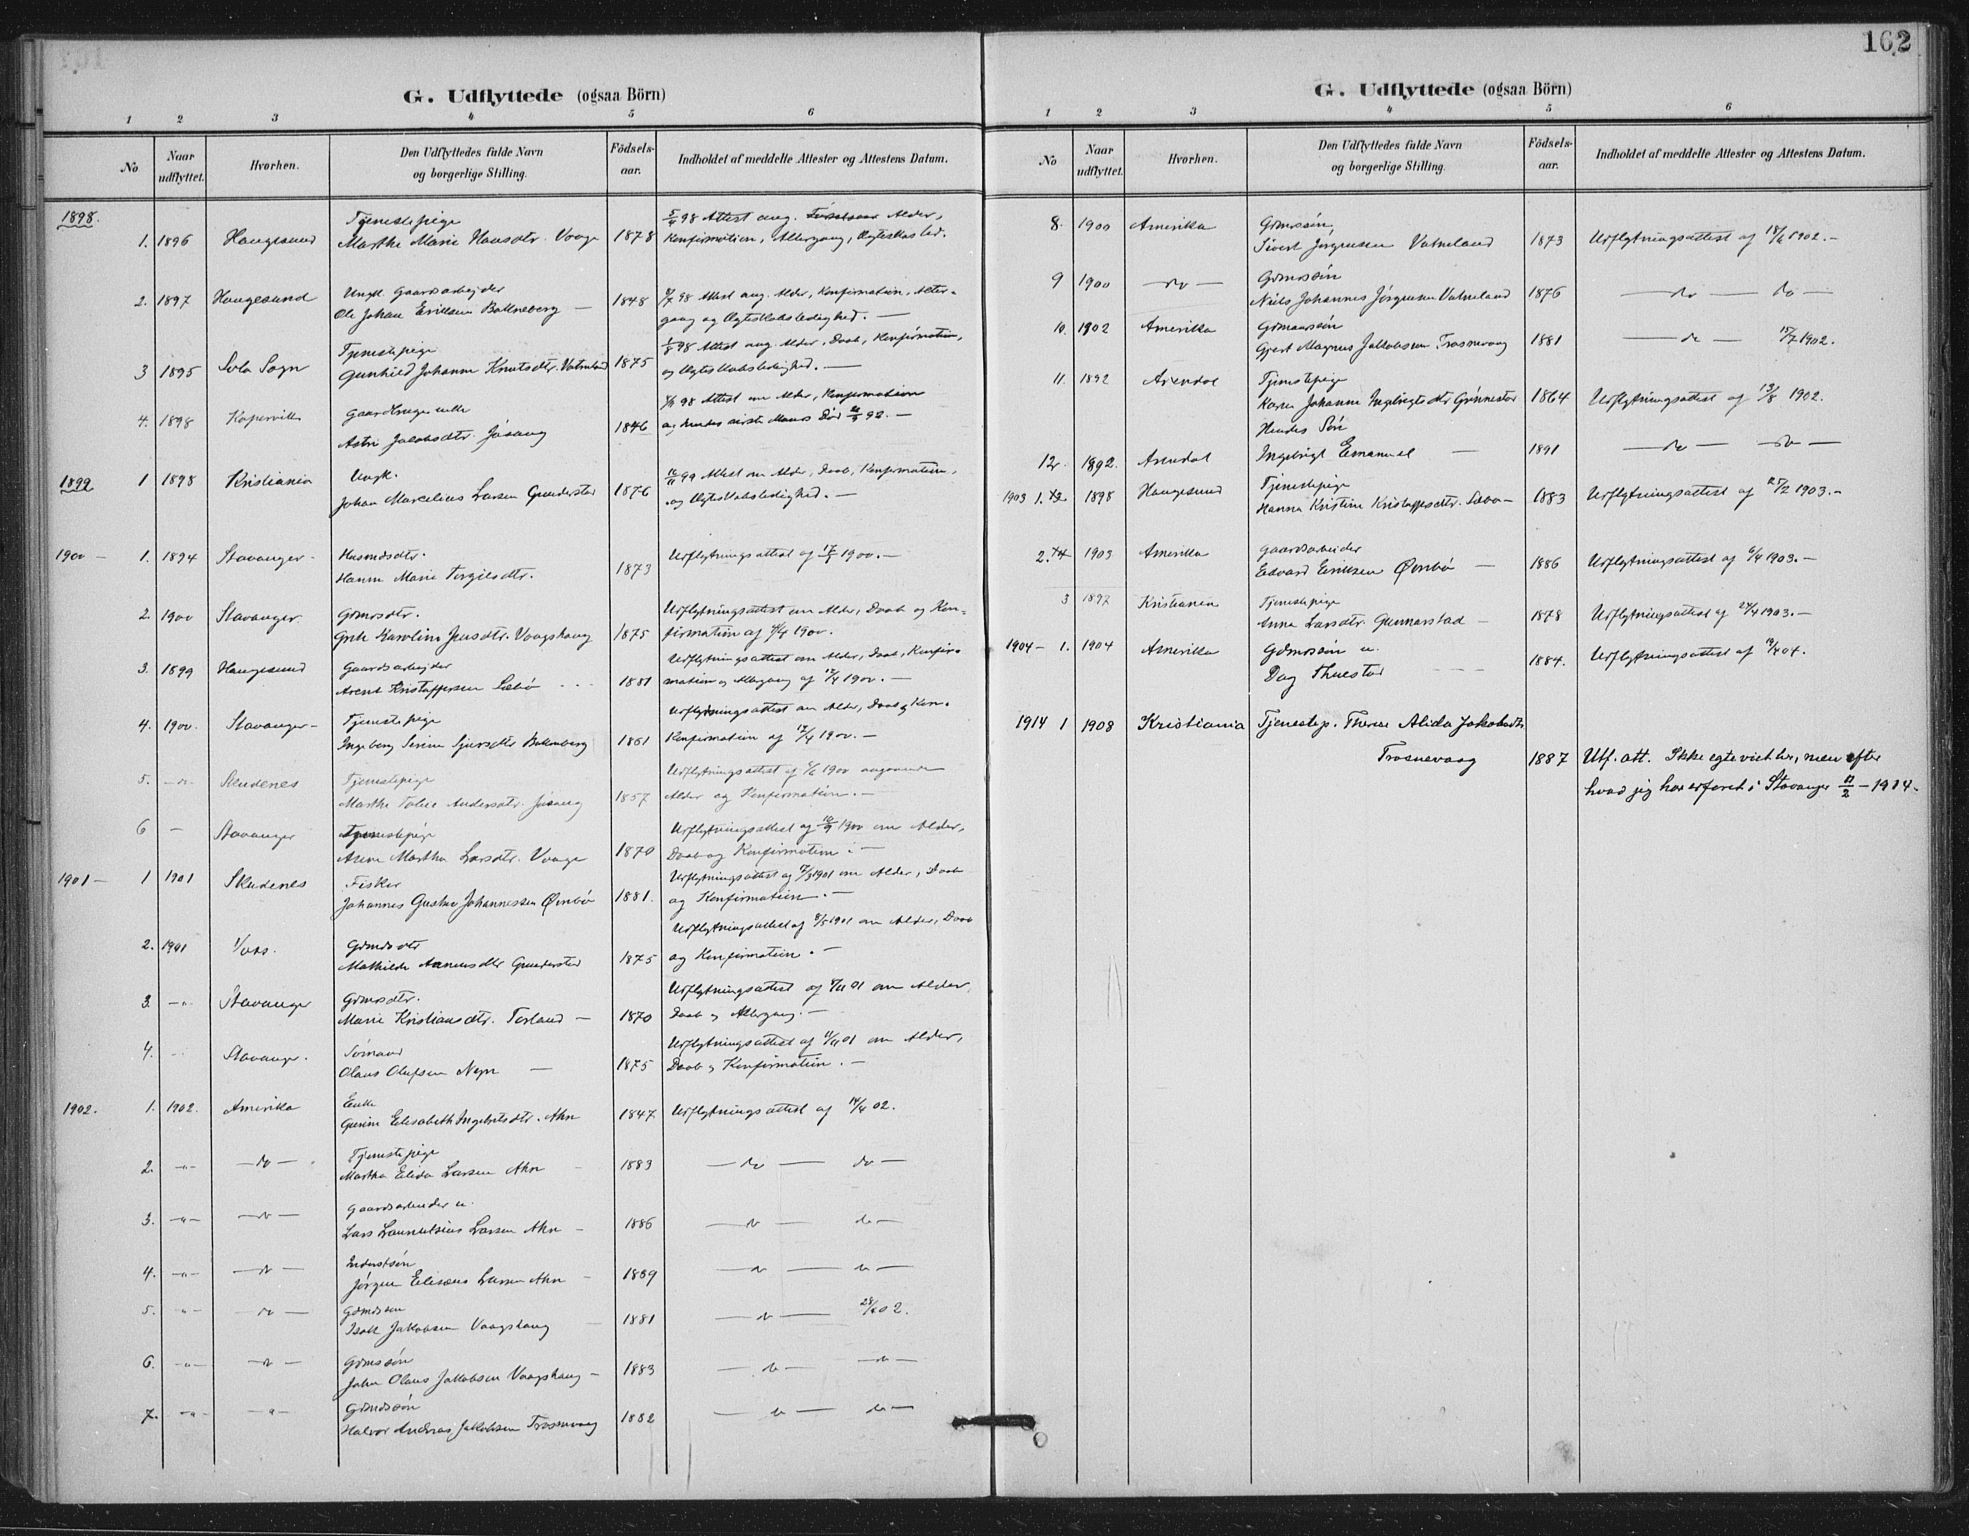 162
G. Udflyttede (ogsaa Börn)
1 2 3 4 5 6
No Naar udflyttet. Hvorhen. Den Udflyttedes fulde Navn og borgerlige Stilling. Födsels-aar. Indholdet af meddelte Attester og Attestens Datum.
1898.
Tjenestepige
1. 1896 Haugesund Marthe Marie Hansdtr. Vaage 1878 Konfirmation, Altergang, Ægteskabsled.
Ungk. Gaardsarbejder
2. 1897 Haugesund Ole Johan Eriksen Bakneberg — 1848 98 Attest ang. Alder, Konfirmation, Alter-
gang og Ægteskabsledighed. —
Tjenestepige
98 Attest ang. Alder, Daab, Konfirmation,
3 1895 Sola Sogn Gunhild Johanne Knutsdtr. Vatneland 1875 og Ægteskabsledighed. —
98 Attest om Alder, Konfirmation
4. 1898 Kopervik Astri Jakobsdtr. Jøsang 1846 og hendes første Mands Død 92. —
1899 1 1898 Kristiania Ungk.
Johan Marcelius Larsen Gunderstad 1876 99 Attest om Alder, Daab, Konfirmation,
og Ægteskabsledighed. —
1900 — 1. 1894 Stavanger — Husmdsdtr.
Hanne Marie Torgilsdtr. 1873 Udflytningsattest af 1900. —
2. 1900 Stavanger Gdmdsdtr.
Grete Karoline Jensdtr. Vaagshaug 1875 Udflytningsattest om Alder, Daab og Kon-
firmation af 1900.
3. 1899 Haugesund Gaardsarbejder
Arent Kristoffersen Sæbø 1881 Udflytningsattest om Alder, Daab, Konfir-
mation og Altergang af 1900. —
4. 1900. Stavanger — Tjenestepige
Ingeborg Serine Sjursdtr. Bakneberg 1861 Udflytningsattest om Alder, Daab og Kon-
Konfirmation af 17/4 1900. —
5. —„— Skudenes Tjenestepige
Marthe Taline Andersdtr. Jøsang 1857 Udflytningsattest af 1900 angaaende
Alder og Konfirmation. —
6 — Stavanger Tjenestepige
Martha Larsdtr. Vaage 1870 Udflytningsattest af 1900 om Alder,
Daab og Konfirmation. —
1901 — 1 1901 Skudenes Fisker
Johannes Gustav Johannessen Ørnbø 1881. Udflytningsattest af 1901 om Alder, Daab
og Konfirmation. —
2. 1901 Voss. Gdmdsdtr
Mathilde Asmusdtr Gunderstad 1875 Udflytningsattest af 8/5 1901 om Alder, Daab
og Konfirmation. —
3. —„— Stavanger Gdmdsdtr.
Marie Kristiansdtr. Torland — 1870 Udflytningsattest af 01 om Alder
Daab og Altergang. —
4. Stavanger. Sømand
Olaus Olufsen — 1875 Udflytningsattest af 01 om Alder,
Daab og Konfirmation. —
1902. 1. 1902. Amerika Enke
Gurine Elisabeth Ingebretsdtr. Ahn 1847 Udflytningsattest af 14/4 02.
2. —„— —do— Tjenestepige
Martha Elida Larsen Ahn 1883 —do— do—
3. —„— —do— Gaardsarbeider u.
Lars Larsen Ahn — 1886 —do— do—
4. —„— —do— Inderstsøn
Jørgen Eliseus Larsen Ahn — 1889 —do— do—
5. —„— —do— Gdmdssøn
Isak Jakobsen Vaagshaug 1881 —do— 28/4 02.
6. —„— —do— Gdmdssøn
John Olaus Jakobsen Vaagshaug — 1883 —do— do—
7. —„— —„— Gdmdssøn
Halvor Andreas Jakobsen Trosnevaag 1882 —do— do—
G. Udflyttede (ogsaa Börn)
1 2 3 4 5 6
No Naar udflyttet. Hvorhen. Den Udflyttedes fulde Navn og borgerlige Stilling. Födsels-aar. Indholdet af meddelte Attester og Attestens Datum.
8. 1900 Amerika Gdmdssøn,
Sivert Jørgensen Vatneland 1873 Udflytningsattest af 1902. —
9 1900 —do— Gdmdssøn
Niels Johannes Jørgensen Vatneland 1876 —do— do—
10. 1902 Amerika Gdmandssøn
Gjert Magnus Jakobsen Trosnevaag 1881 —do— 15/7 1902.
11. 1892 Arendal Tjenestepige
Karen Johanne Ingebrigtsdtr Grønnestad 1864 Udflytningsattest af 13/8 1902.
Hendes Søn
12. 1892. Arendal Ingebrigt Emanuel — 1891 —do— do—
1903 1. 1898 Haugesund Tjenestepige
Hanna Kristine Kristoffersdtr. Sæbø — 1883 Udflytningsattest af 25/2 1903. —
2. 1903 Amerika Gaardsarbeider
Edvard Eriksen Ørnbø — 1886 Udflytningsattest af 6/4 1903. —
3 1897 Kristiania Tjenestepige
Anna Larsdtr. Gunnarstad — 1878 Udflytningsattest af 27/4 1903. —
1904 — 1. 1904 Amerika Gdmdssøn u.
Dag Thuestad 1884. Udflytningsattest af 19/4 04.
1914 1 1908 Kristiania Tjenestep. Therese Alida Jakobsdtr.
Trosnevaag 1887 Utf. att. Ikke egteviet her, men efter
hvad jeg har erfaret i Stavanger 11/2 — 1914.